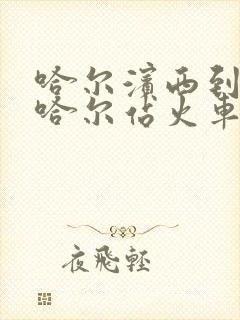 哈尔滨西到
哈尔佔火車
夜飛輕